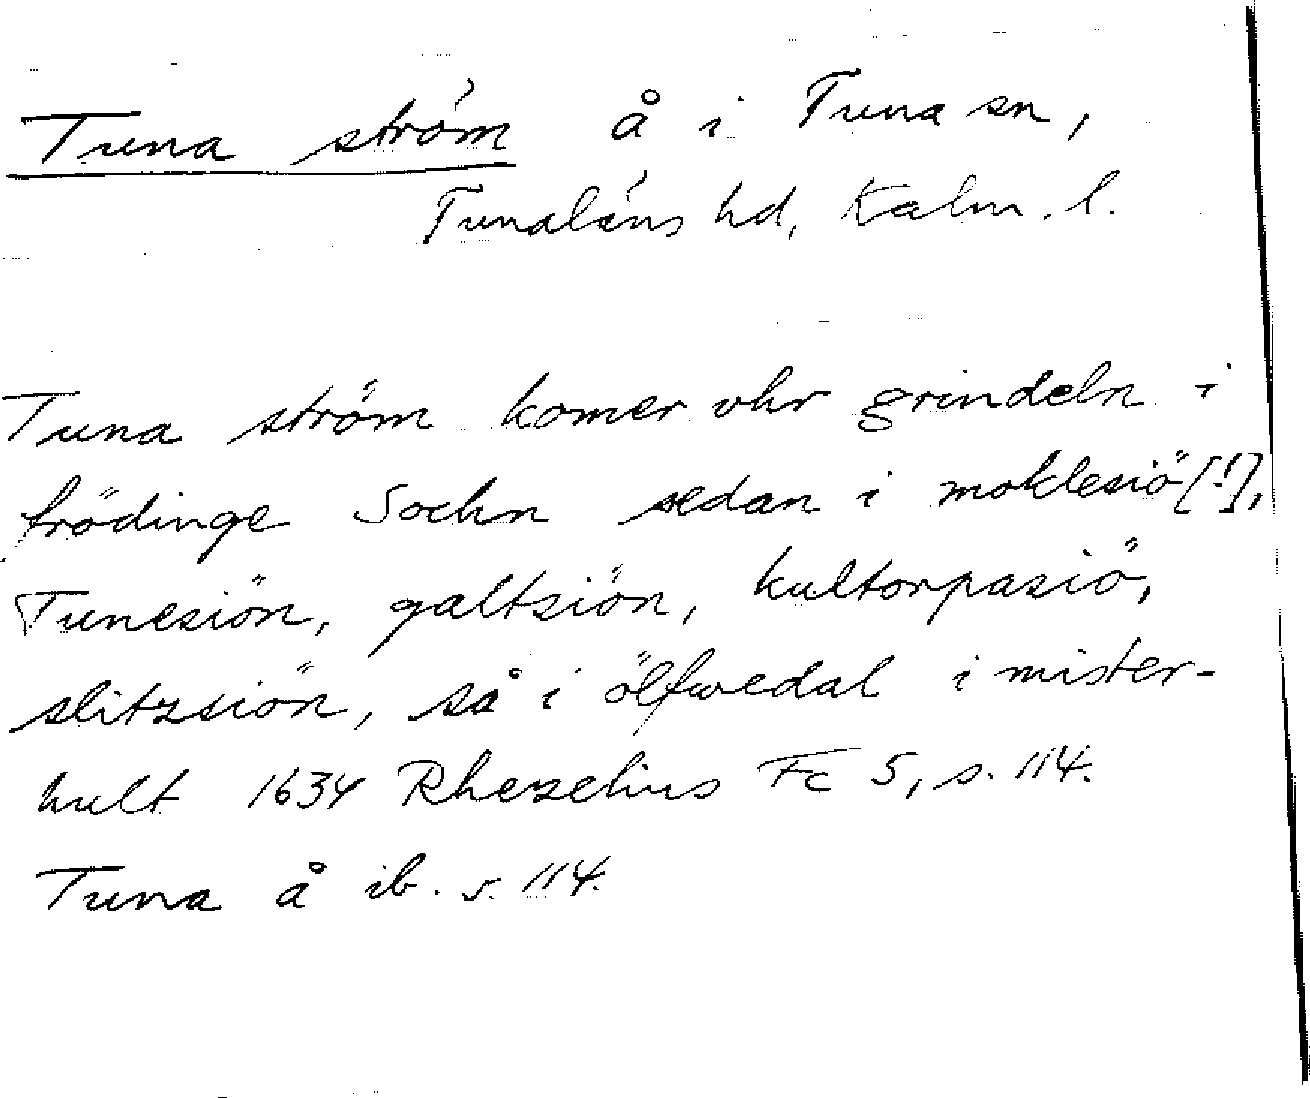 Tuna ström å i Tuna sn,
Tunaläns hd, Kalm. l.
Tuna ström komer vhr grindeln i
frödinge Sochn sedan i moklesiö[!],
Tunesiön, galtsiön, hultorpasiö,
slitzsiön, så i ölfwedal i mister-
hult 1634 Rhezelius Fc 5, s. 114.
Tuna å ib. s. 114.